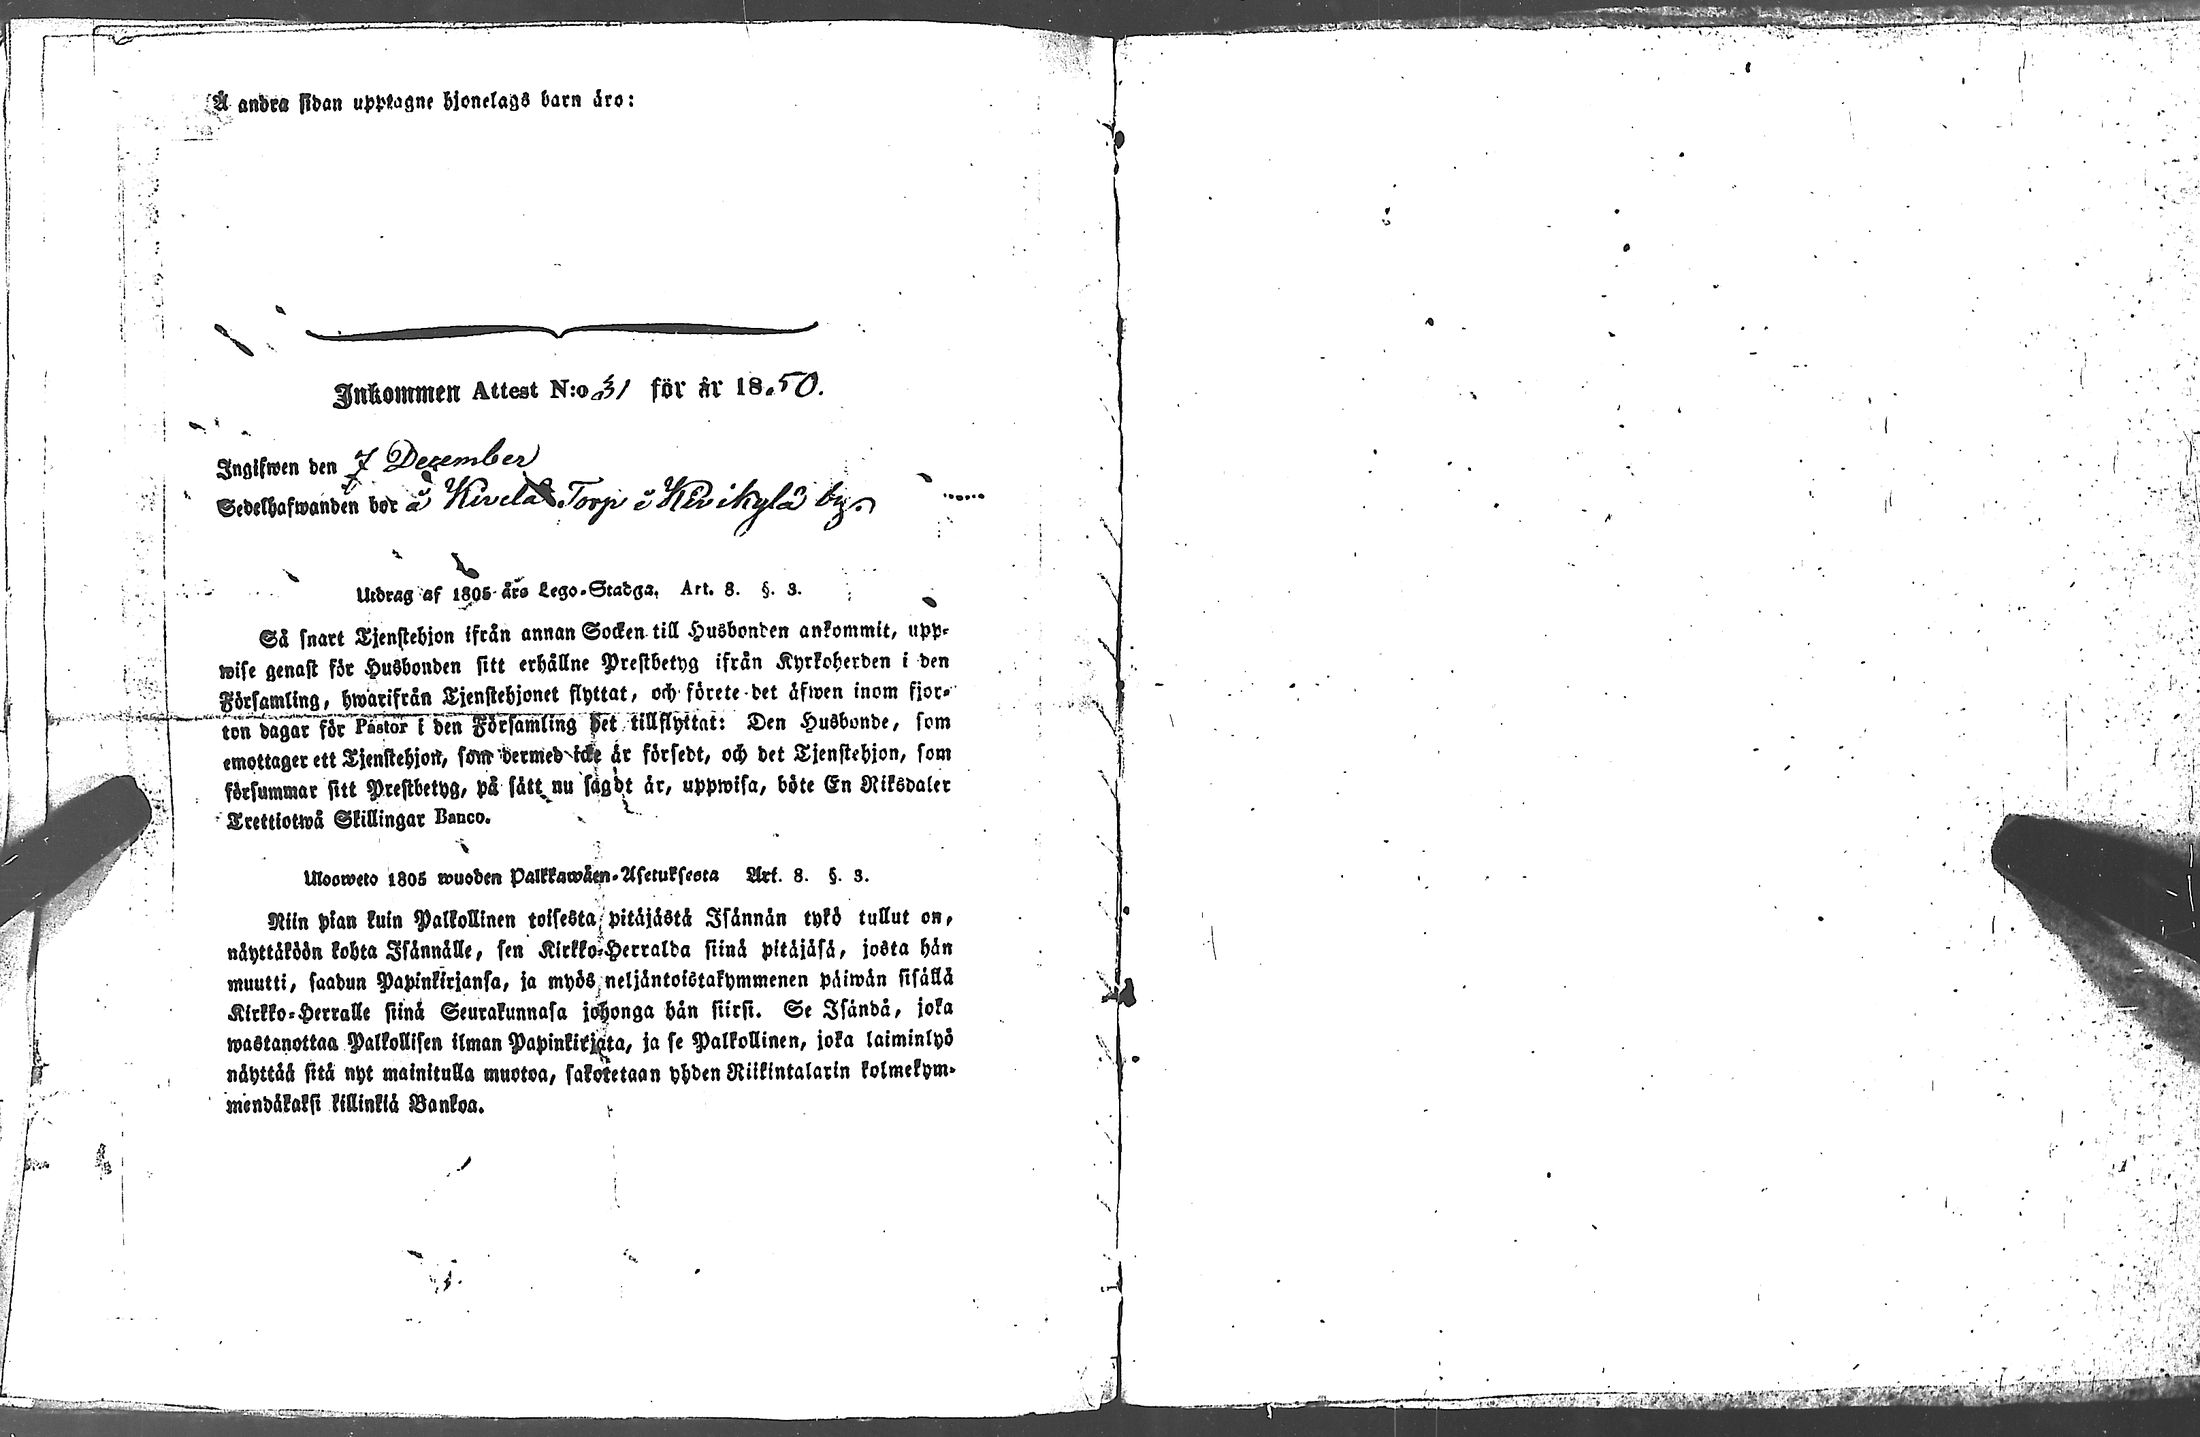 Å andra sidan upptagne hjonelags barn äro:
Inkommen Attest N:o 31 för år 1850.
Ingifwen den 7 December
Sedelhafwanden bor å Kivelä Torp i Kivikylä by.
Utdrag af 1805 års Lego-Stadga, Art. 8. §. 3.
Så snart Tjenstehjon ifrån annan Socken till Husbonden ankommit, upp-
wise genast för Husbonden sitt erhållne Prestbetyg ifrån Kyrkoherden i den
Församling, hwarifrån Tjenstehjonet flyttat, och förete det äfwen inom fjor-
ton dagar för Pastor i den Församling det tillflyttat: Den Husbonde, som
emottager ett Tjenstehjon, som dermed icke är försedt, och det Tjenstehjon, som
försummar sitt Prestbetyg, på sätt nu sagdt är, uppwisa, böte En Riksdaler
Trettiotwå Skillingar Banco.
Ulosweto 1805 wuoden Palkkawäen-Asetuksesta Art. 8. §. 3.
Niin pian kuin Palkollinen toisesta pitäjästä Isännän tykö tullut on,
näyttäköön kohta Isännälle, sen Kirkko-Herralda siinä pitäjäsä, josta hän
muutti, saadun Papinkirjansa, ja myös neljäntoistakymmenen päiwän sisällä
Kirkko-Herralle siinä Seurakunnasa johonga hän siirsi. Se Isändä, joka
wastanottaa Palkollisen ilman Papinkirjata, ja se Palkollinen, joka laiminlyö
näyttää sitä nyt mainitulla muotoa, sakotetaan yhden Riikintalarin kolmekym-
mendäkaksi killinkiä Bankoa.